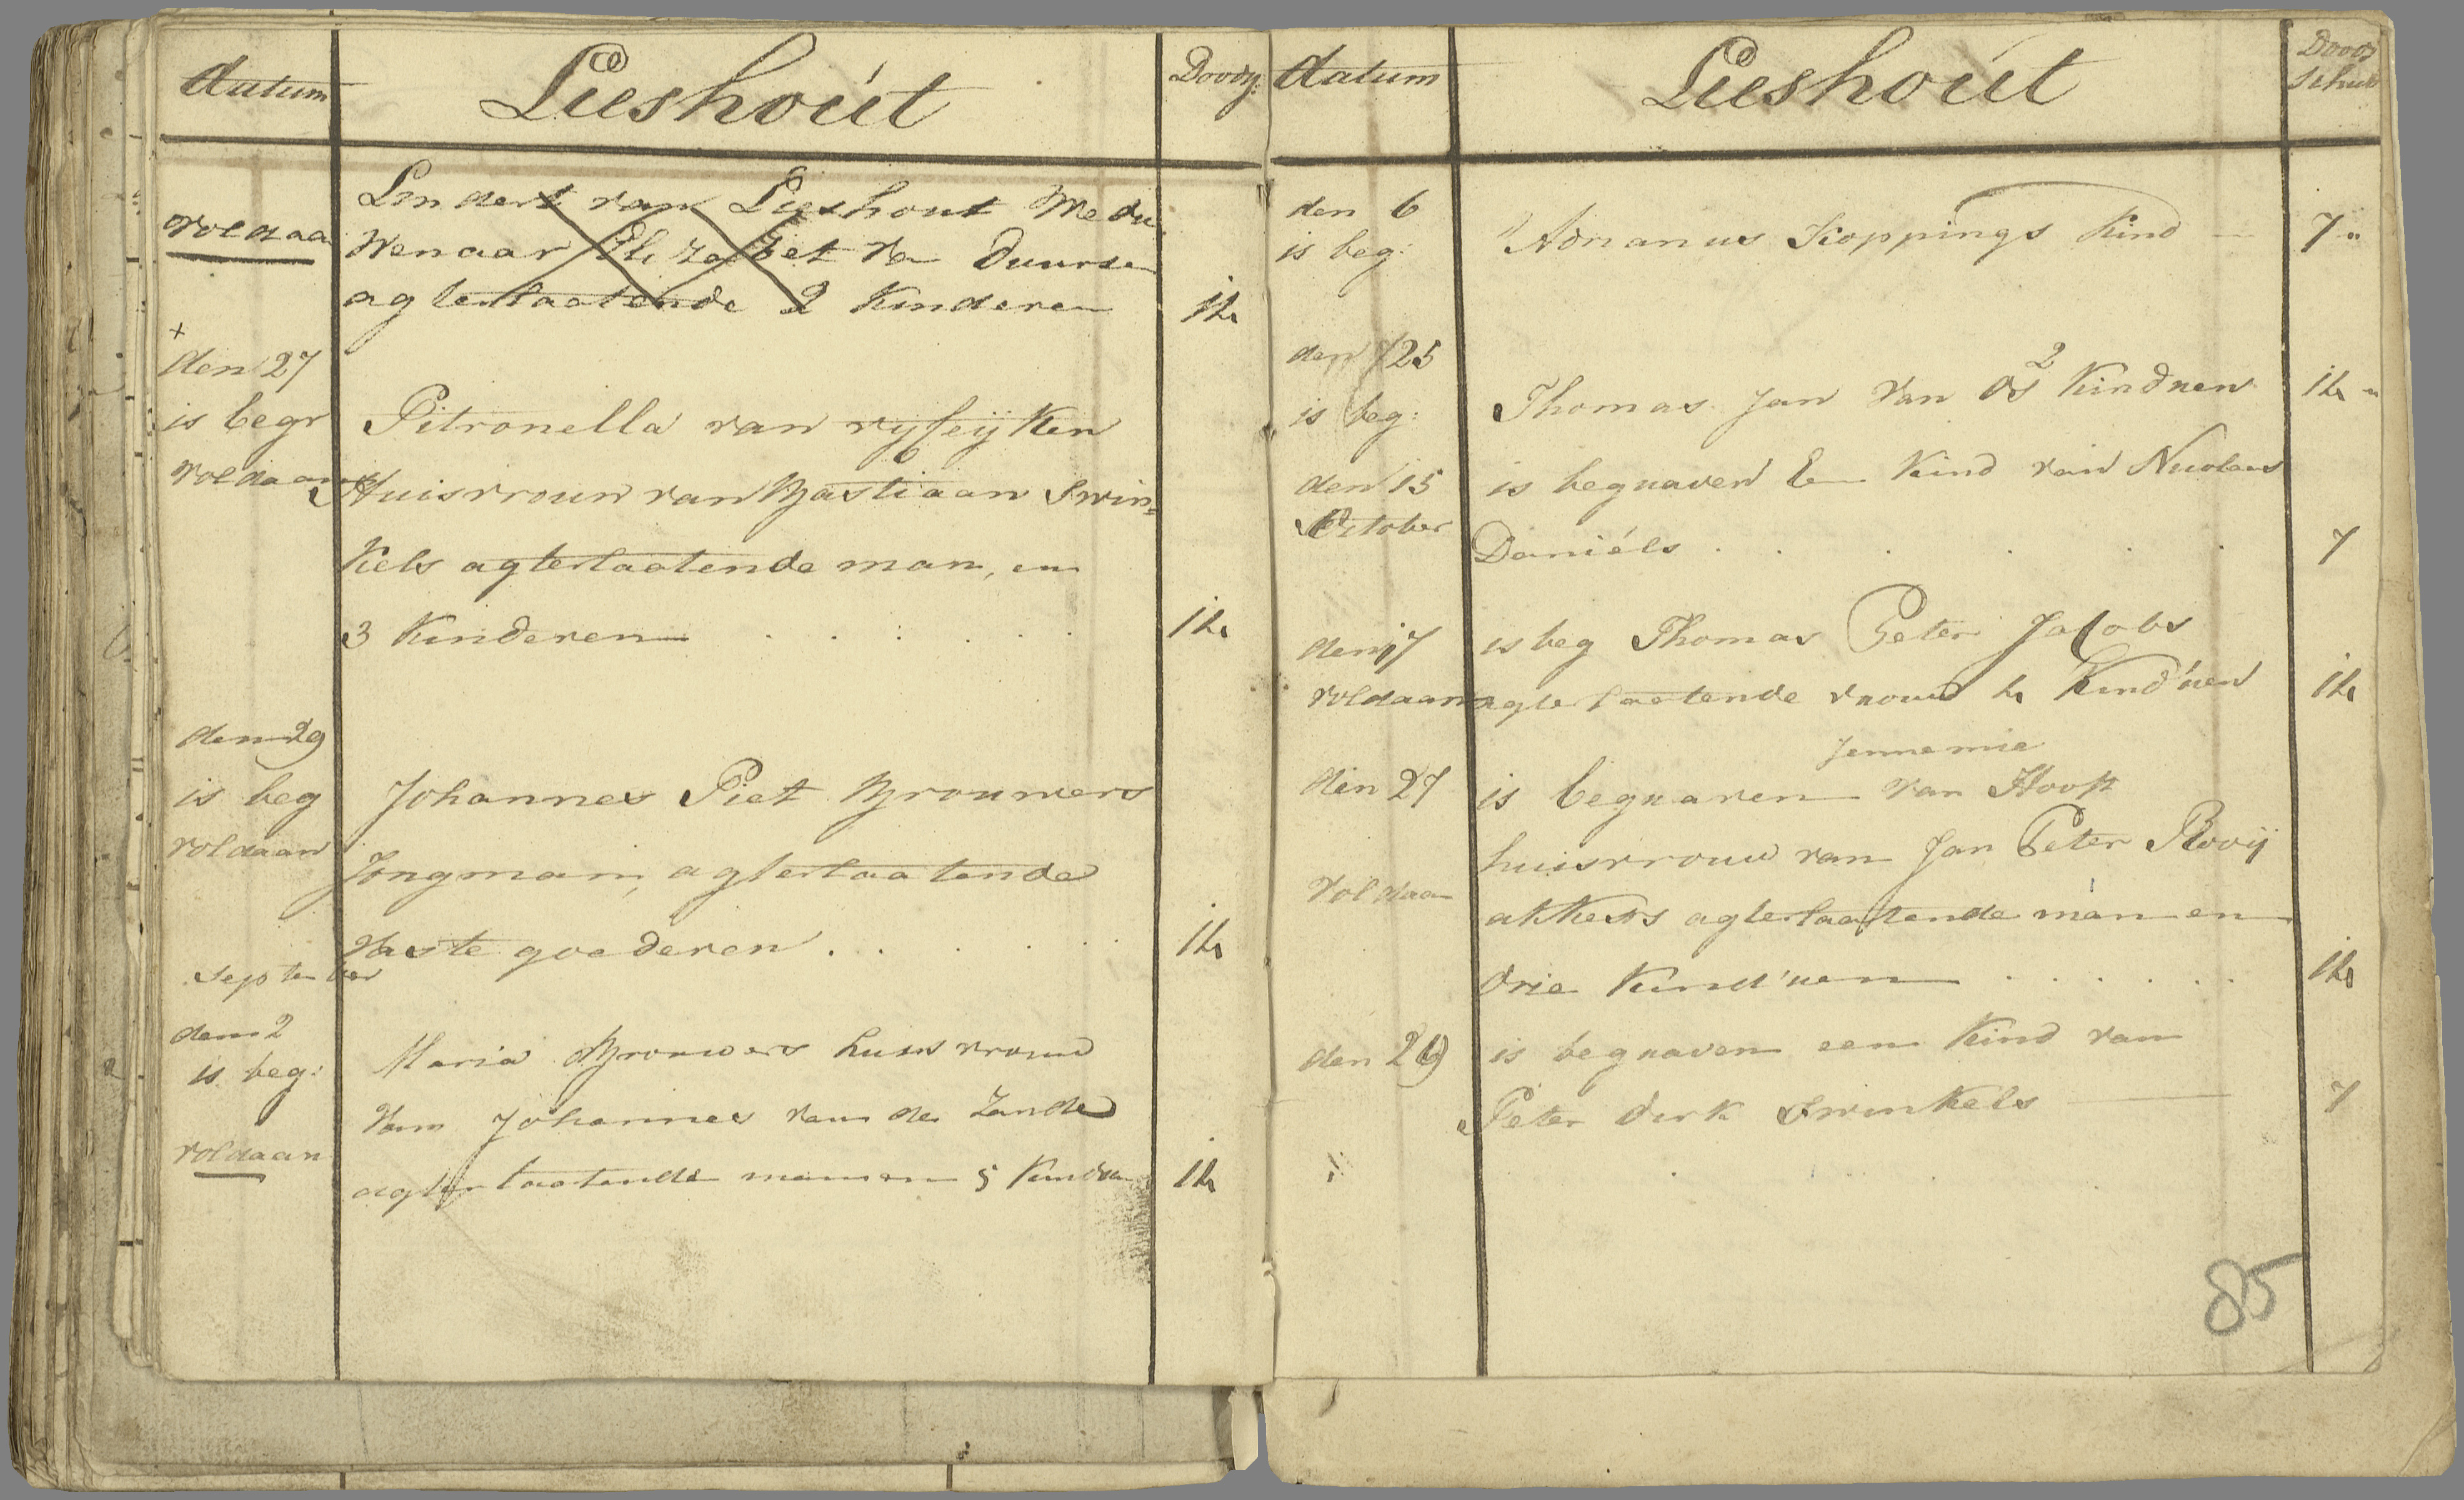 datum
Lieshout
Doody:
voldaa
Lendert van Lieshout Wedu
wenaar Elizabet va Duurse
agterlaatende 2 Kinderen
14
+
den 27
is begr
voldaan
Petronella van ryfeijken
Huisvrouw van Bastiaan Swin=
kels agterlaatende man, en
3 Kinderen . . . . . .
14
den 29
is beg
voldaan
Johannes Piet Brouwers
Jongman, agterlaatende
vaste goederen . . . . . .
14
September
den 2
is beg:
voldaan
Maria Brouwers huisvrouw
van Johannes van de Zande
agterlaatende man en 5 Kindre
14
datum
Lieshout
Doods
Schuld
den 6
is beg:
Adrianus Koppings Kind
7 "
den 25
is beg:
2
Thomas Jan van Os Kindren
14 "
den 15
October
is begraven Een Kind van Nicolaas
Daniéls . . . . . .
7
den 17
voldaan
is beg Thomas Peter Jacobs
agterlaatende vrouw 4 Kind'ren
14
den 27
voldaan
Jennemie
is begraven van Hooft
huisvrouw van Jan Peter Rooij
akkers agterlaatende man en
drie Kind'ren . . . . . .
14
den 29
is begraven een Kind van
Peter Dirk Swinkels
7
85